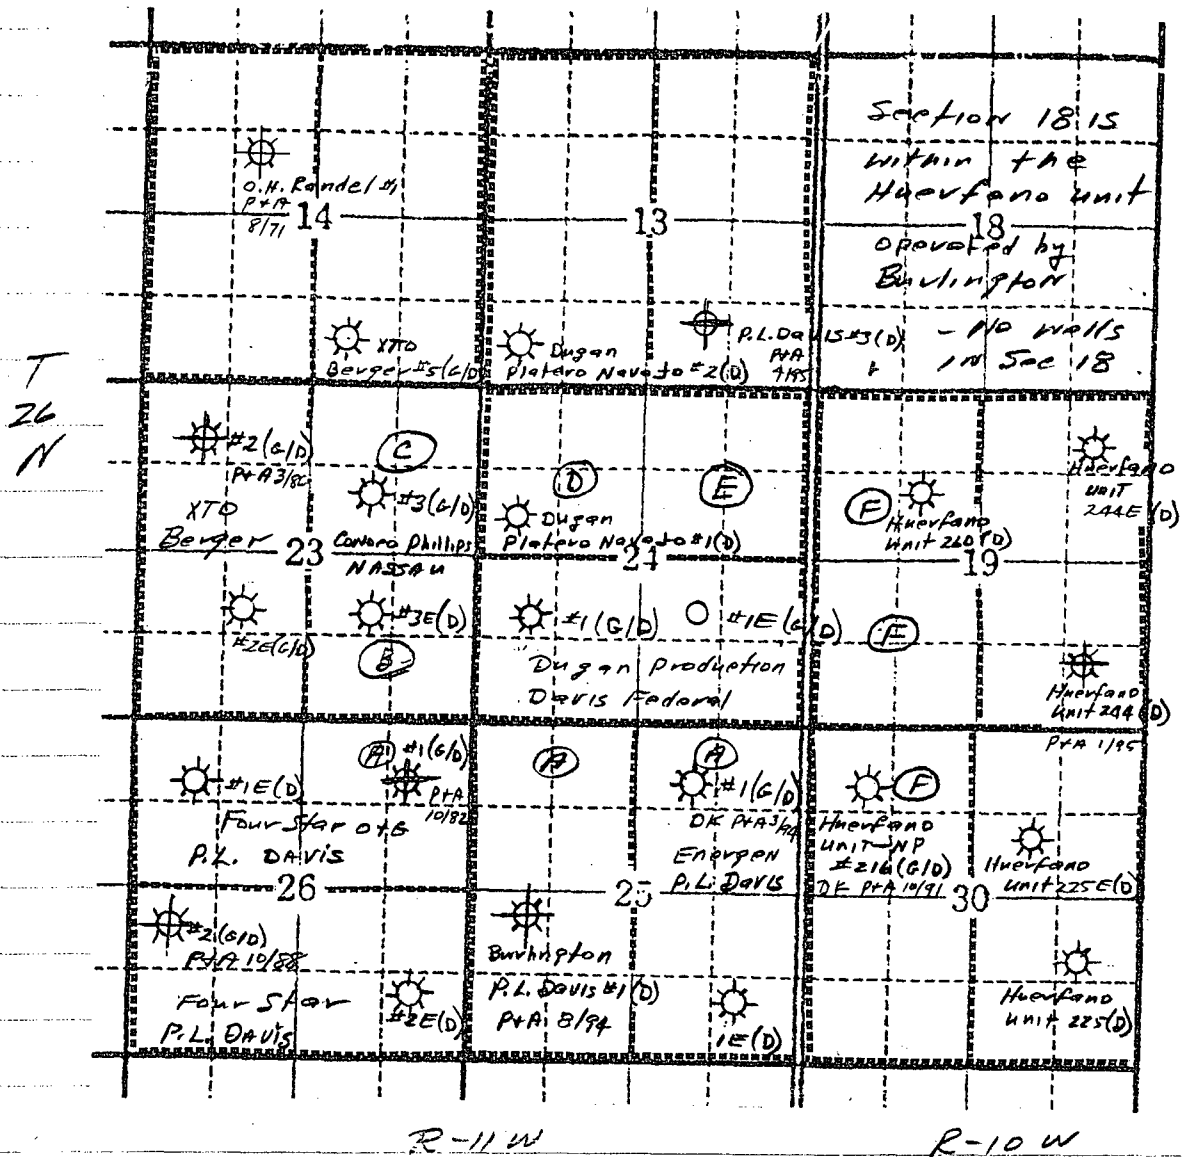 Section 18 is
within the
Huerfano unit
18
operated by
Burlington
- No wells
in Sec 18
O.H. Randel #1
P+A
8/71
14
13
XTO
Berger #5 (G/D)
Dugan
Platero Navajo #2 (D)
P.L. Davis #3 (D)
P+A
4/95
T
26
N
#2 (G/D)
C
#3 (G/D)
XTO
Berger
23
Conoco Phillips
NASSAU
#2E (G/D)
#3E (D)
B
D
E
Dugan
Platero Navajo #1 (D)
24
#1 (G/D)
#1E (G/D)
Dugan Production
Davis Federal
F
Huerfano
Unit 260 (D)
Huerfano
Unit
244E (D)
19
F
Huerfano
Unit 244 (D)
P+A 1/95
A
#1 (G/D)
P+A
10/82
#1E (D)
Four Star O+G
P.L. DAVIS
26
#2 (G/D)
P+A 10/88
Four Star
P.L. DAVIS
#2E (D)
A
A
#1 (G/D)
DK P+A 3/94
Energen
P.L. Davis
25
Burlington
P.L. Davis #1 (D)
P+A 8/94
1E (D)
F
Huerfano
Unit-NP
#216 (G/D)
DK P+A 10/91
Huerfano
Unit 225E (D)
30
Huerfano
Unit 225 (D)
R-11 W
R-10 W